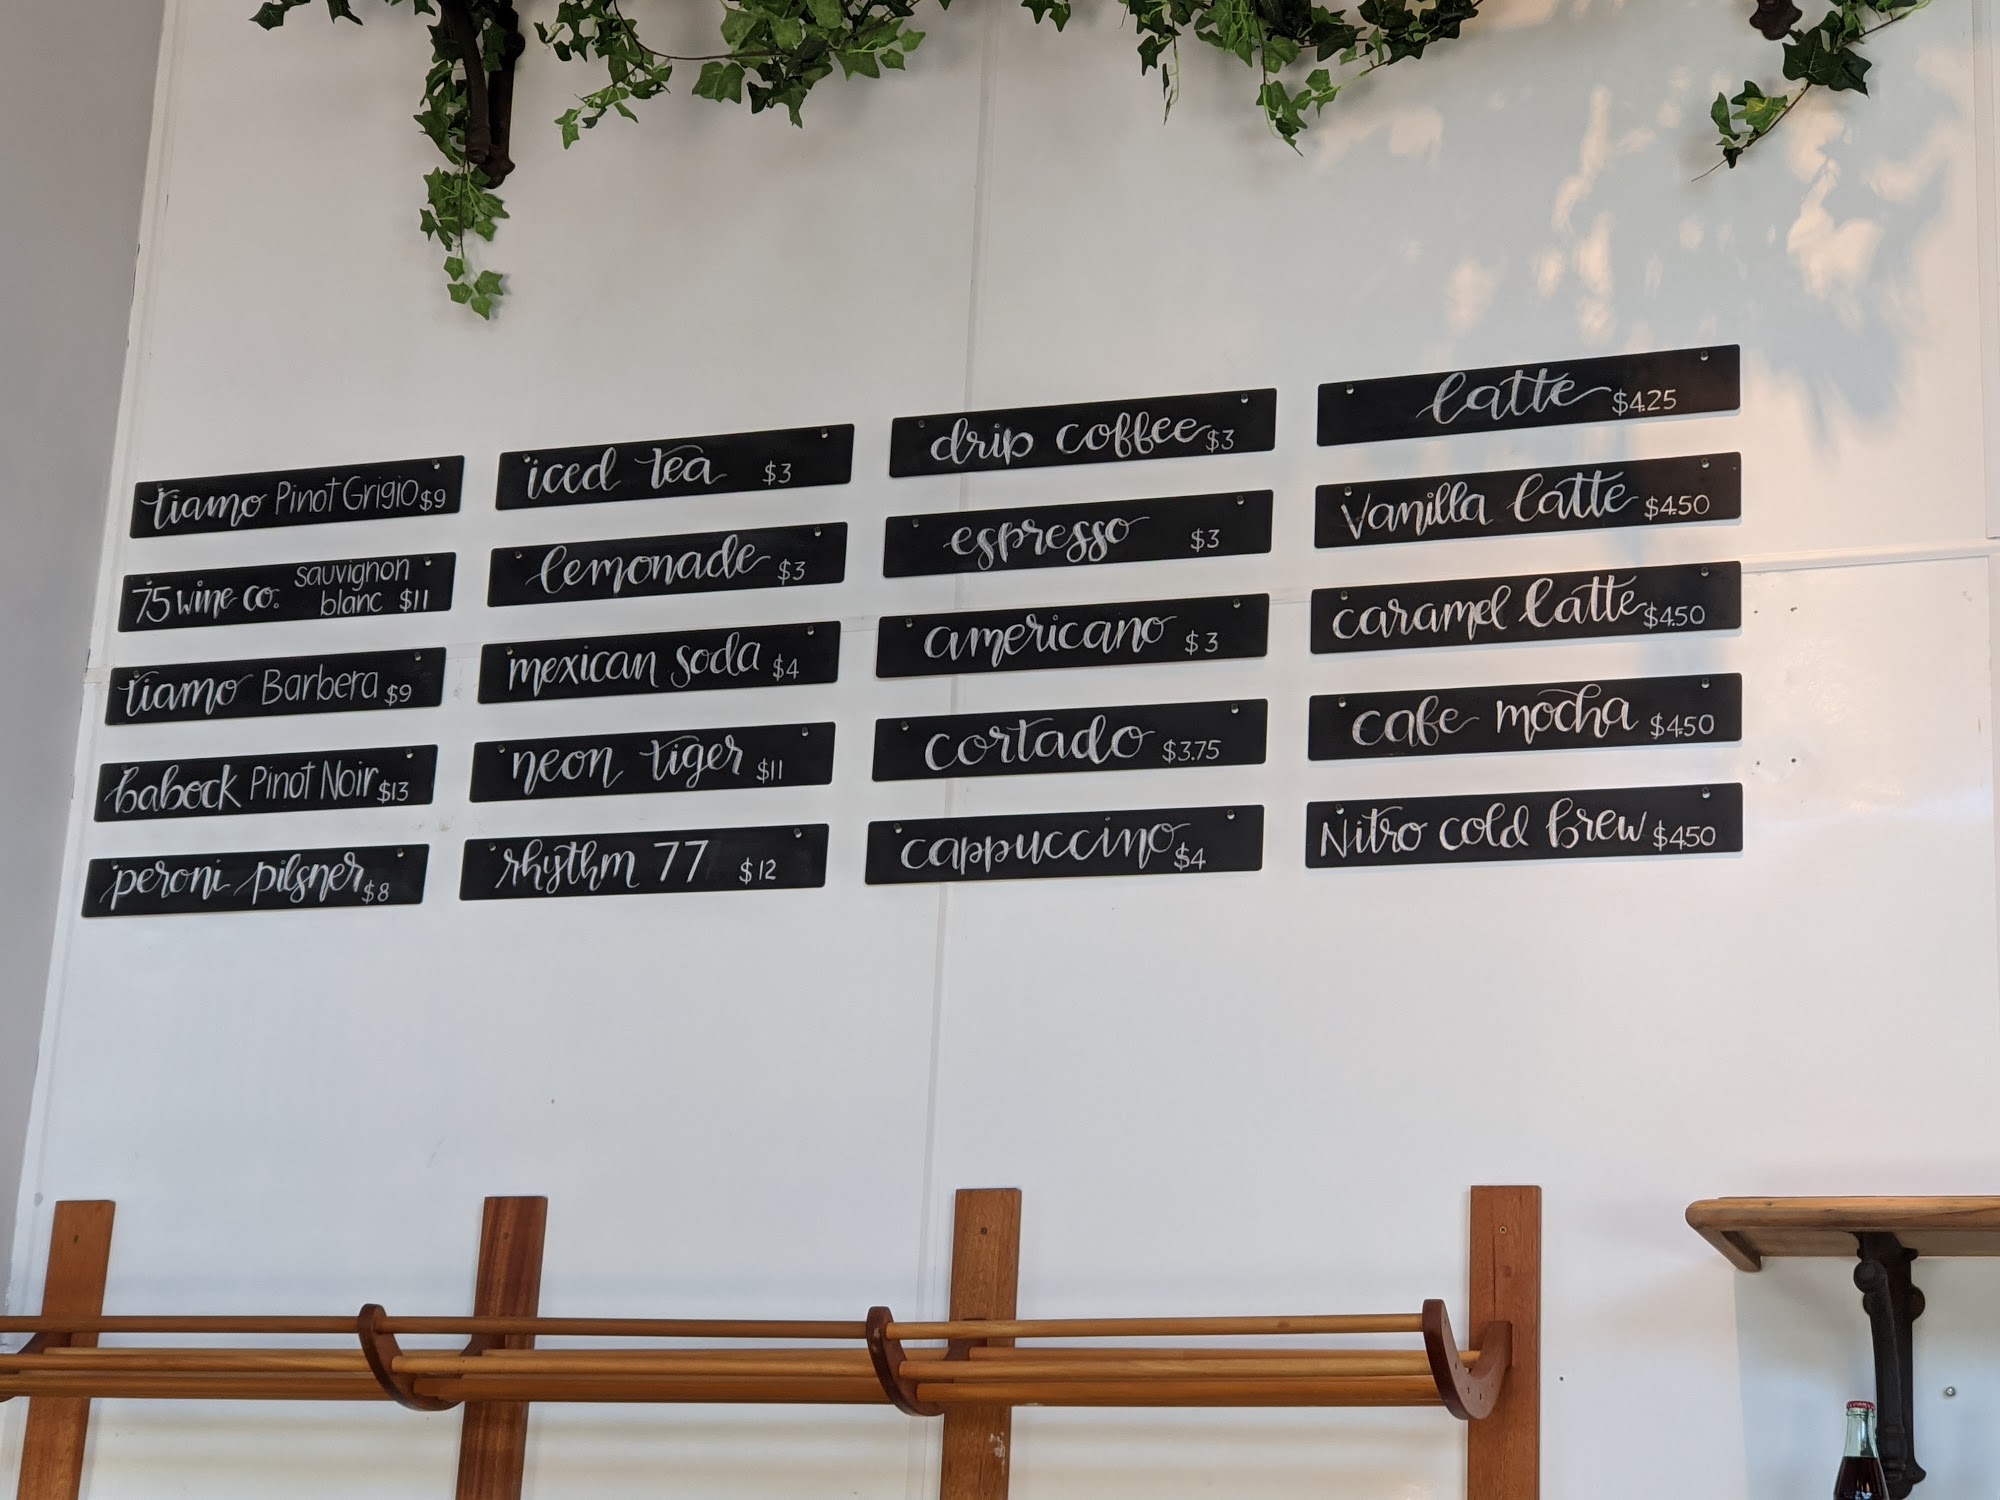 tiamo Pinot Grigio $9
75 wine co. sauvignon
blanc $11
tiamo Barbera $9
babock Pinot Noir $13
peroni pilsner $8
iced tea $3
lemonade $3
mexican soda $4
neon tiger $11
rhythm 77 $12
drip coffee $3
espresso $3
americano $3
cortado $3.75
cappuccino $4
latte $4.25
Vanilla latte $4.50
caramel latte $4.50
cafe mocha $4.50
Nitro cold brew $4.50